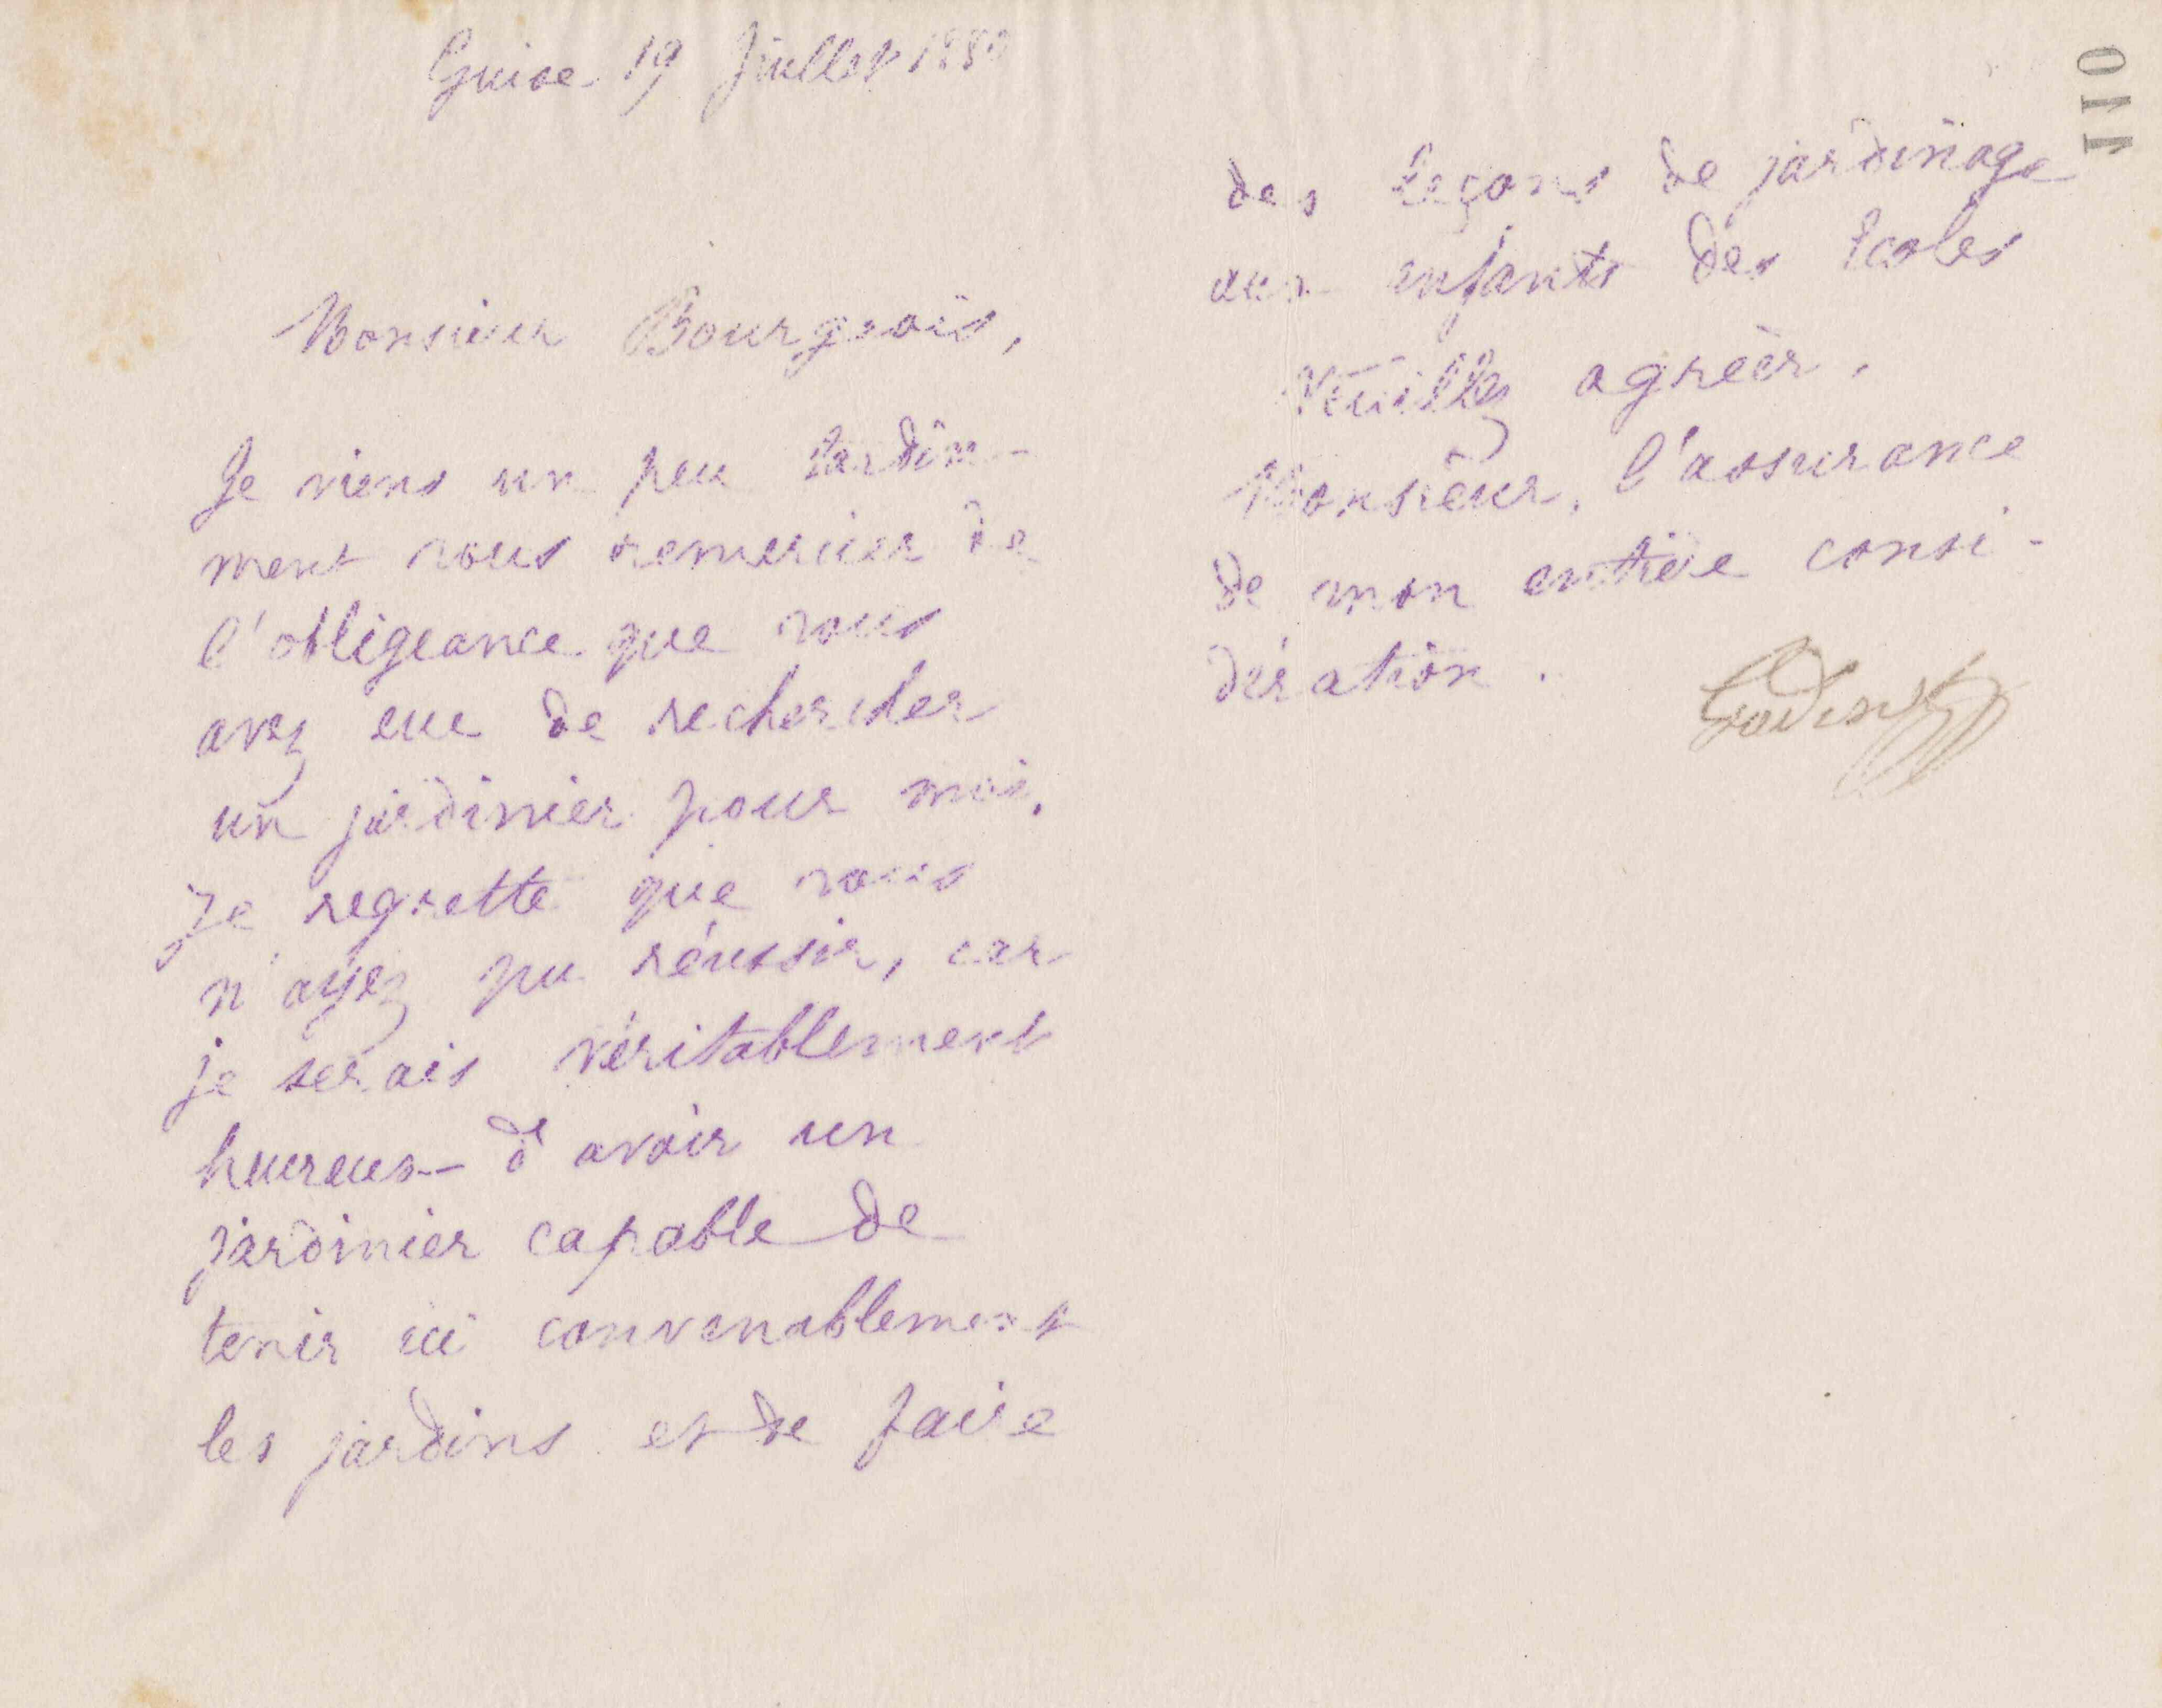 Guise 19 Juillet 1880
Monsieur Bourgeois,
Je viens un peu tardive-
ment vous remercier de
l'obligeance que vous
avez eue de rechercher
un jardinier pour moi.
Je regrette que vous
n'ayez pu réussir, car
je serais véritablement
heureux d'avoir un
jardinier capable de
tenir ici convenablement
les jardins et de faire
110
des leçons de jardinage
aux enfants des écoles
Veuillez agréer,
Monsieur, l'assurance
de mon entière consi-
dération.
Godin